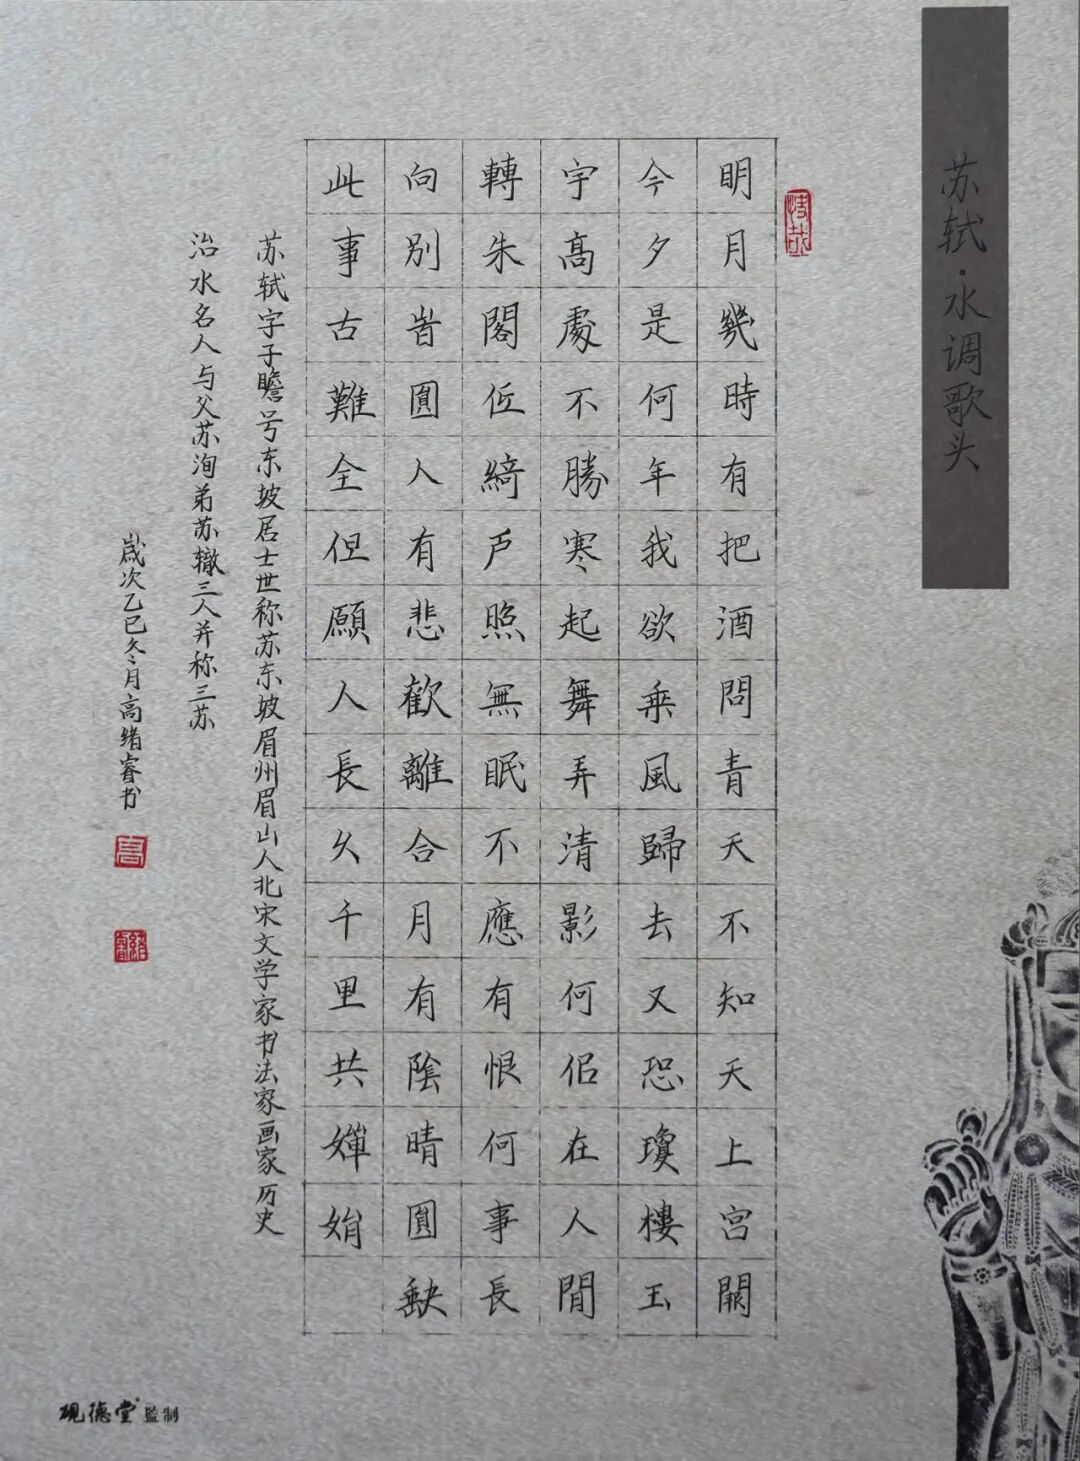 苏轼·水调歌头
明月幾時有把酒問青天不知天上宫闕
今夕是何年我欲乘風歸去又恐瓊樓玉
宇髙處不勝寒起舞弄清影何佀在人間
轉朱閣低綺戶照無眠不應有恨何事長
向別旹圓人有悲歡離合月有陰晴圓缺
此事古難全但願人長久千里共嬋娟
苏轼字子瞻号东坡居士世称苏东坡眉州眉山人北宋文学家书法家画家历史
治水名人与父苏洵弟苏辙三人并称三苏
歲次乙巳冬月高绪睿书
砚德堂監制